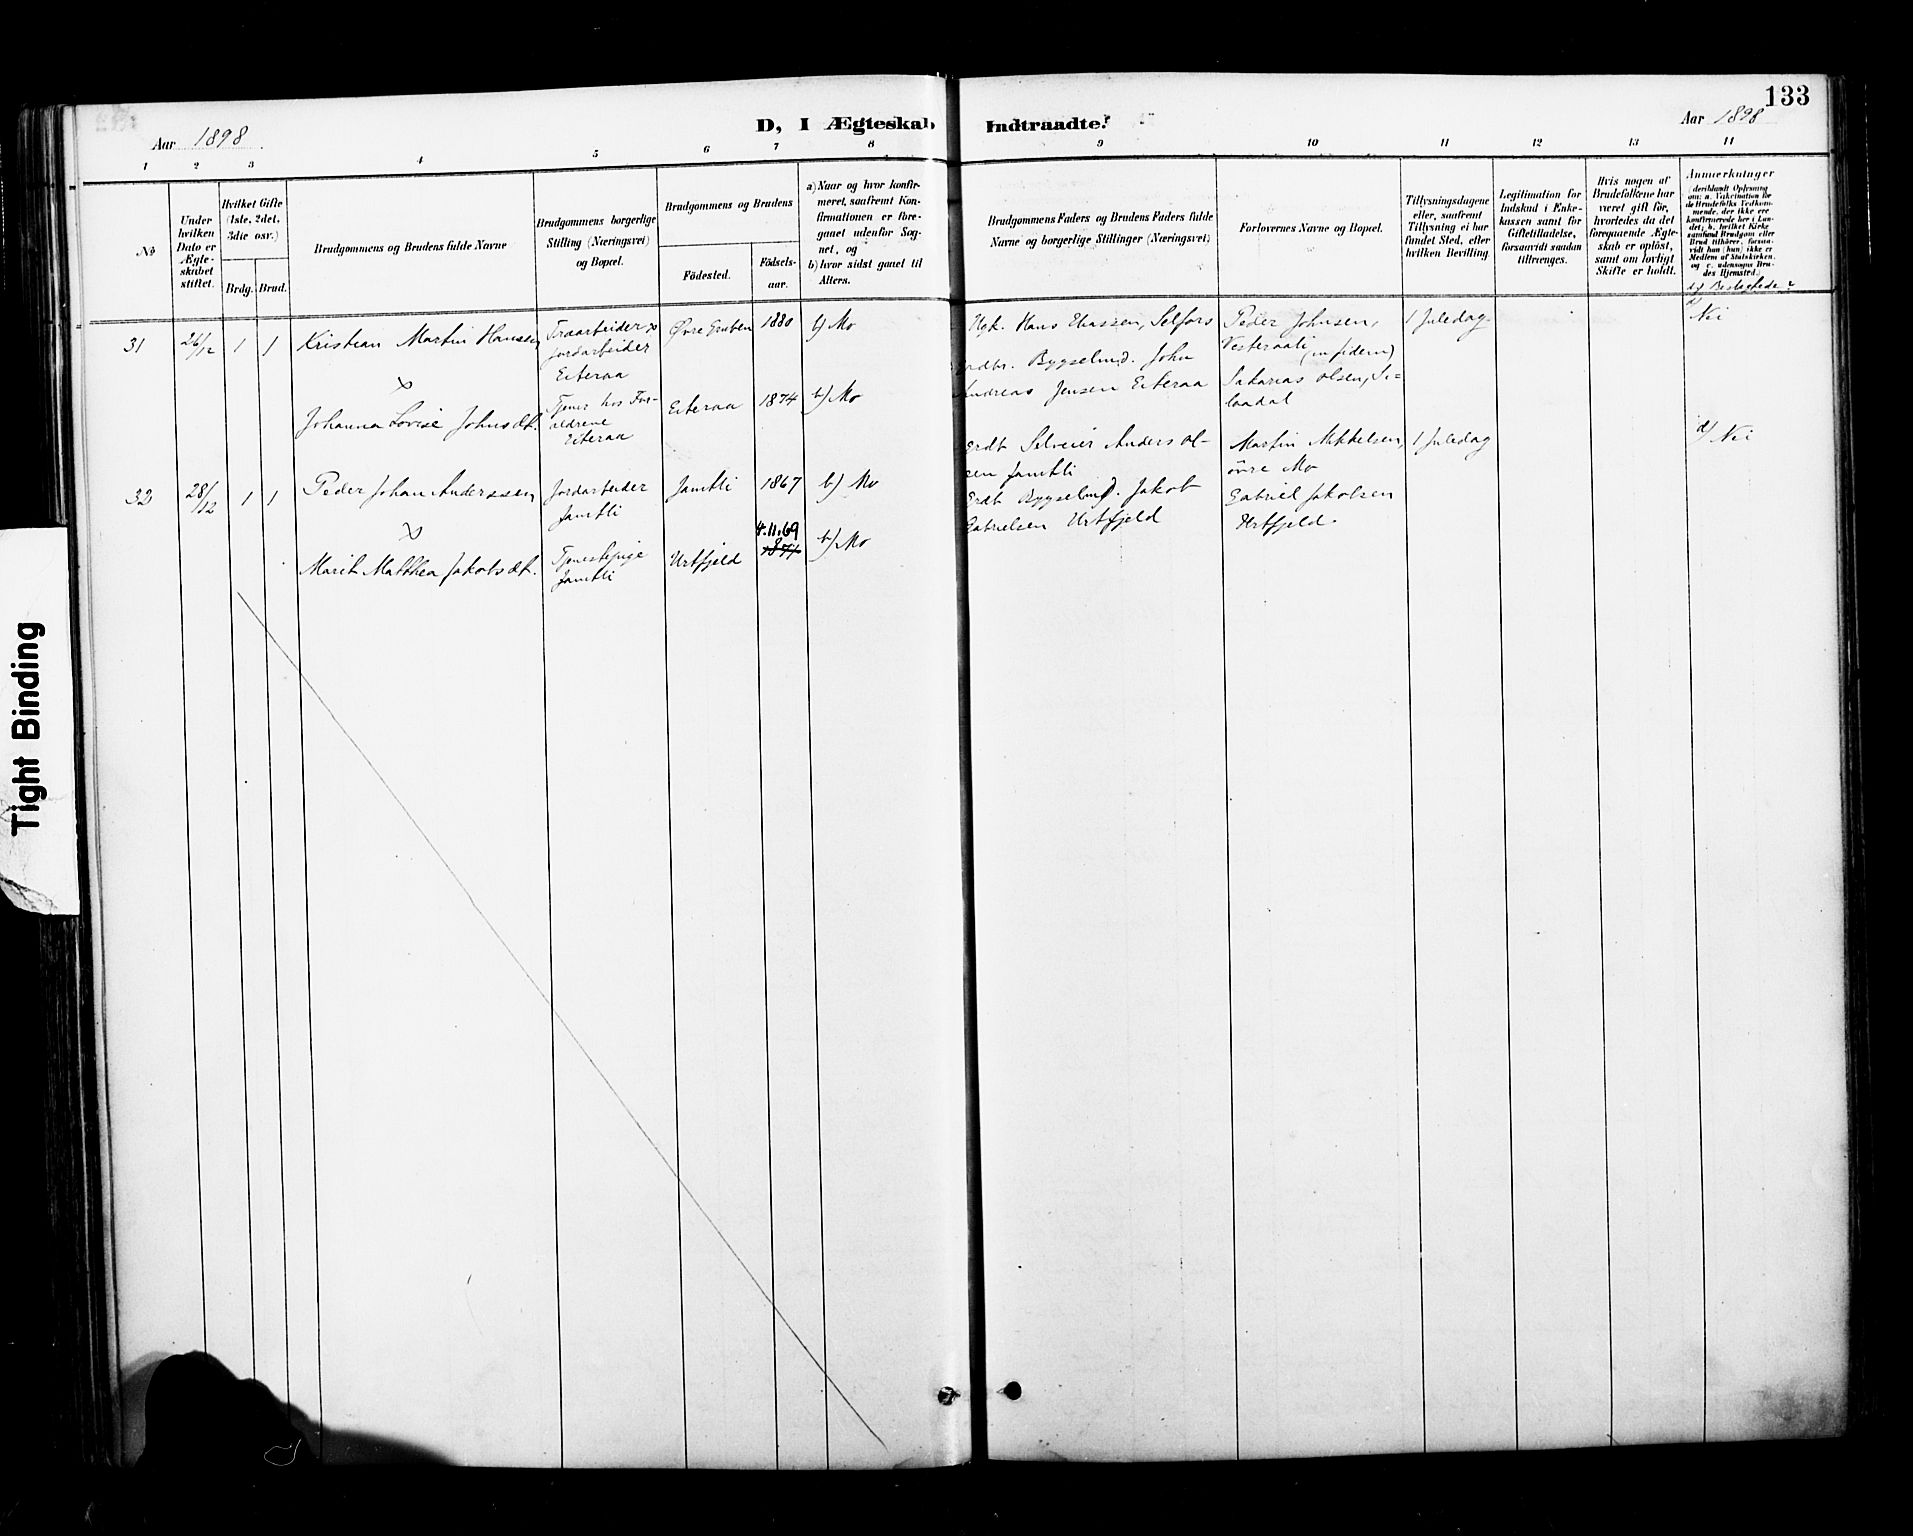 133
Aar 1898
D, I Ægteskab Indtraadte.
Aar 1898
1 2 3 4 5 6 7 8 9 10 11 12 13 14
No
Under
hvilken
Dato er
Ægte-
skabet
stiftet.
Hvilket Gifte
(1ste, 2det,
3die osv.)
Brdg. Brud.
Brudgommens og Brudens fulde Navne
Brudgommens borgerlige
Stilling (Næringsvei)
og Bopæl.
Brudgommens og Brudens
Födested.
Födsels-
aar.
a) Naar og hvor konfir-
meret, saafremt Kon-
firmationen er fore-
gaaet udenfor Sog-
net, og
b) hvor sidst gaaet til
Alters.
Brudgommens Faders og Brudens Faders fulde
Navne og borgerlige Stillinger (Næringsvei)
Forlovernes Navne og Bopæl.
Tillysningsdagene
eller, saafremt
Tillysning ei har
fundet Sted, efter
hvilken Bevilling.
Legitimation for
Indskud i Enke-
kassen samt for
Giftetilladelse,
forsaavidt saadan
tiltrænges.
Hvis nogen af
Brudefolkene har
været gift før,
hvorledes da det
foregaaende Ægte-
skab er oplöst,
samt om lovligt
Skifte er holdt.
Anmærkninger
(deriblandt Oplysning
om: a. Vaktination for
de Brudefolks Vedkom-
mende, der ikke ere
konfirmerede her i Lan-
det; b. hvilket Kirke
samfund Brudgom eller
Brud tilhører, forsaa-
vidt han (hun) ikke er
Medlem af Statskirken,
og c. udensogns Bru-
des Hjemsted.)
d) Beslægtede?
31
26/12
1 1
Kristian Martin Hanssen
x
Johanna Lovise Johnsdt.
Træarbeider &
Jordarbeider
Eiteraa
Tjener hos For-
ældrene
Eiteraa
Øvre Gruben
Eiteraa
1880
1874
b) Mo
b) Mo
Ugk. Hans Eliassen, Selfors
Grdbr. Bygselmd. John
Andreas Jensen Eiteraa
Peder Johnsen,
Vesteraali (in fidem)
Sakarias Olsen, Si=
laadal
1 Juledag
d) Nei
32
28/12
1 1
Peder Johan Anderssen
x
Marit Matthea Jakobsdt.
Jordarbeider
Jamtli
Tjenestepige
Jamtli
Jamtli
Urtfjeld
1867
4.11.69
1871
b) Mo
b) Mo
Grdb Selveier Anders Ol-
sen Jamtli
Grdb Bygselmd. Jakob
Gabrielsen Urtfjeld
Martin Mikkelsen,
øvre Mo
Gabriel Jakobsen
Urtfjeld.
1 Juledag
d) Nei
Tight Binding